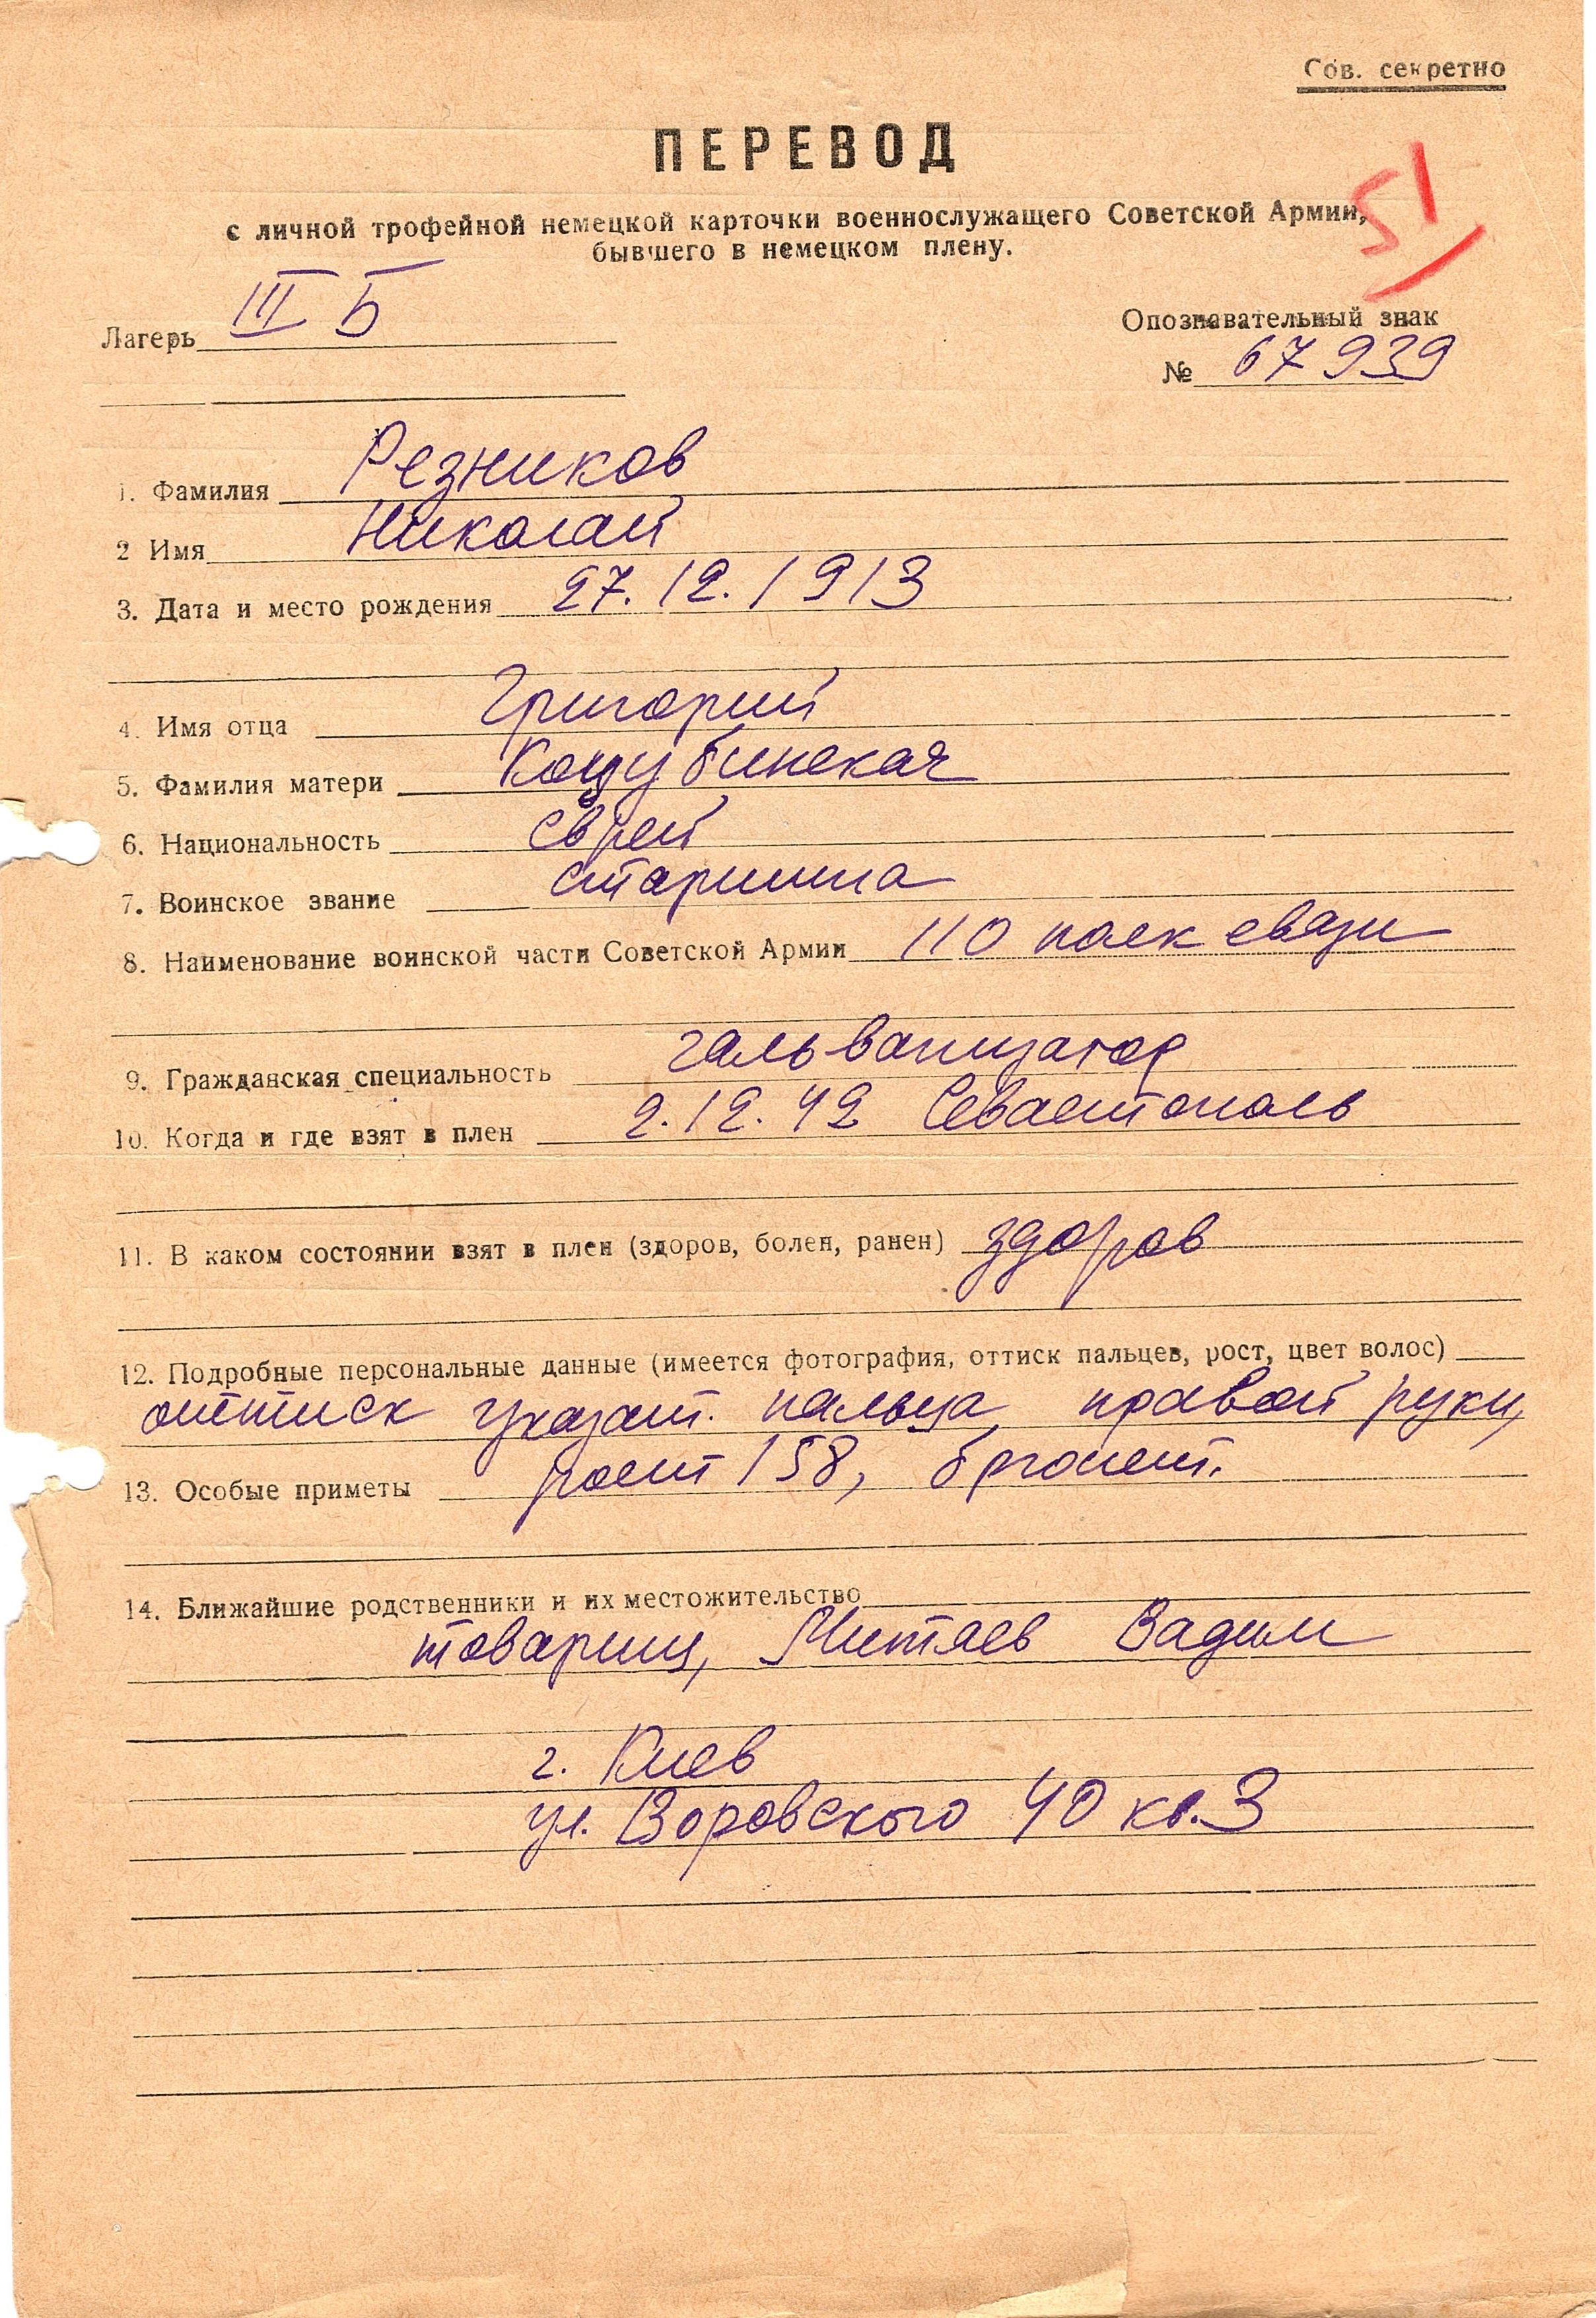 Сов. секретно
ПЕРЕВОД
51
с личной трофейной немецкой карточки военнослужащего Советской Армии,
бывшего в немецком плену.
Лагерь III Б
Опознавательный знак
№ 67939
1. Фамилия Резников
2 Имя Николай
3. Дата и место рождения 27.12.1913
4. Имя отца Григорий
5. Фамилия матери Коцубинская
6. Национальность еврей
7. Воинское звание старшина
8. Наименование воинской части Советской Армии 110 полк связи
9. Гражданская специальность гальванизатор
10. Когда и где взят в плен 2.12.42 Севастополь
11. В каком состоянии взят в плен (здоров, болен, ранен) здоров
12. Подробные персональные данные (имеется фотография, оттиск пальцев, рост, цвет волос)
оттиск указат. пальца правой руки,
13. Особые приметы рост 158, брюнет.
14. Ближайшие родственники и их местожительство
товарищ, Митяев Вадим
г. Киев
ул. Воровского 40 кв.3